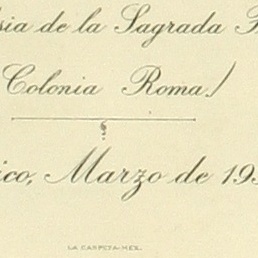 sia de la Sagrada F
Colonia Roma)
ico, Marzo de 193
LA CARPETA-MEX.